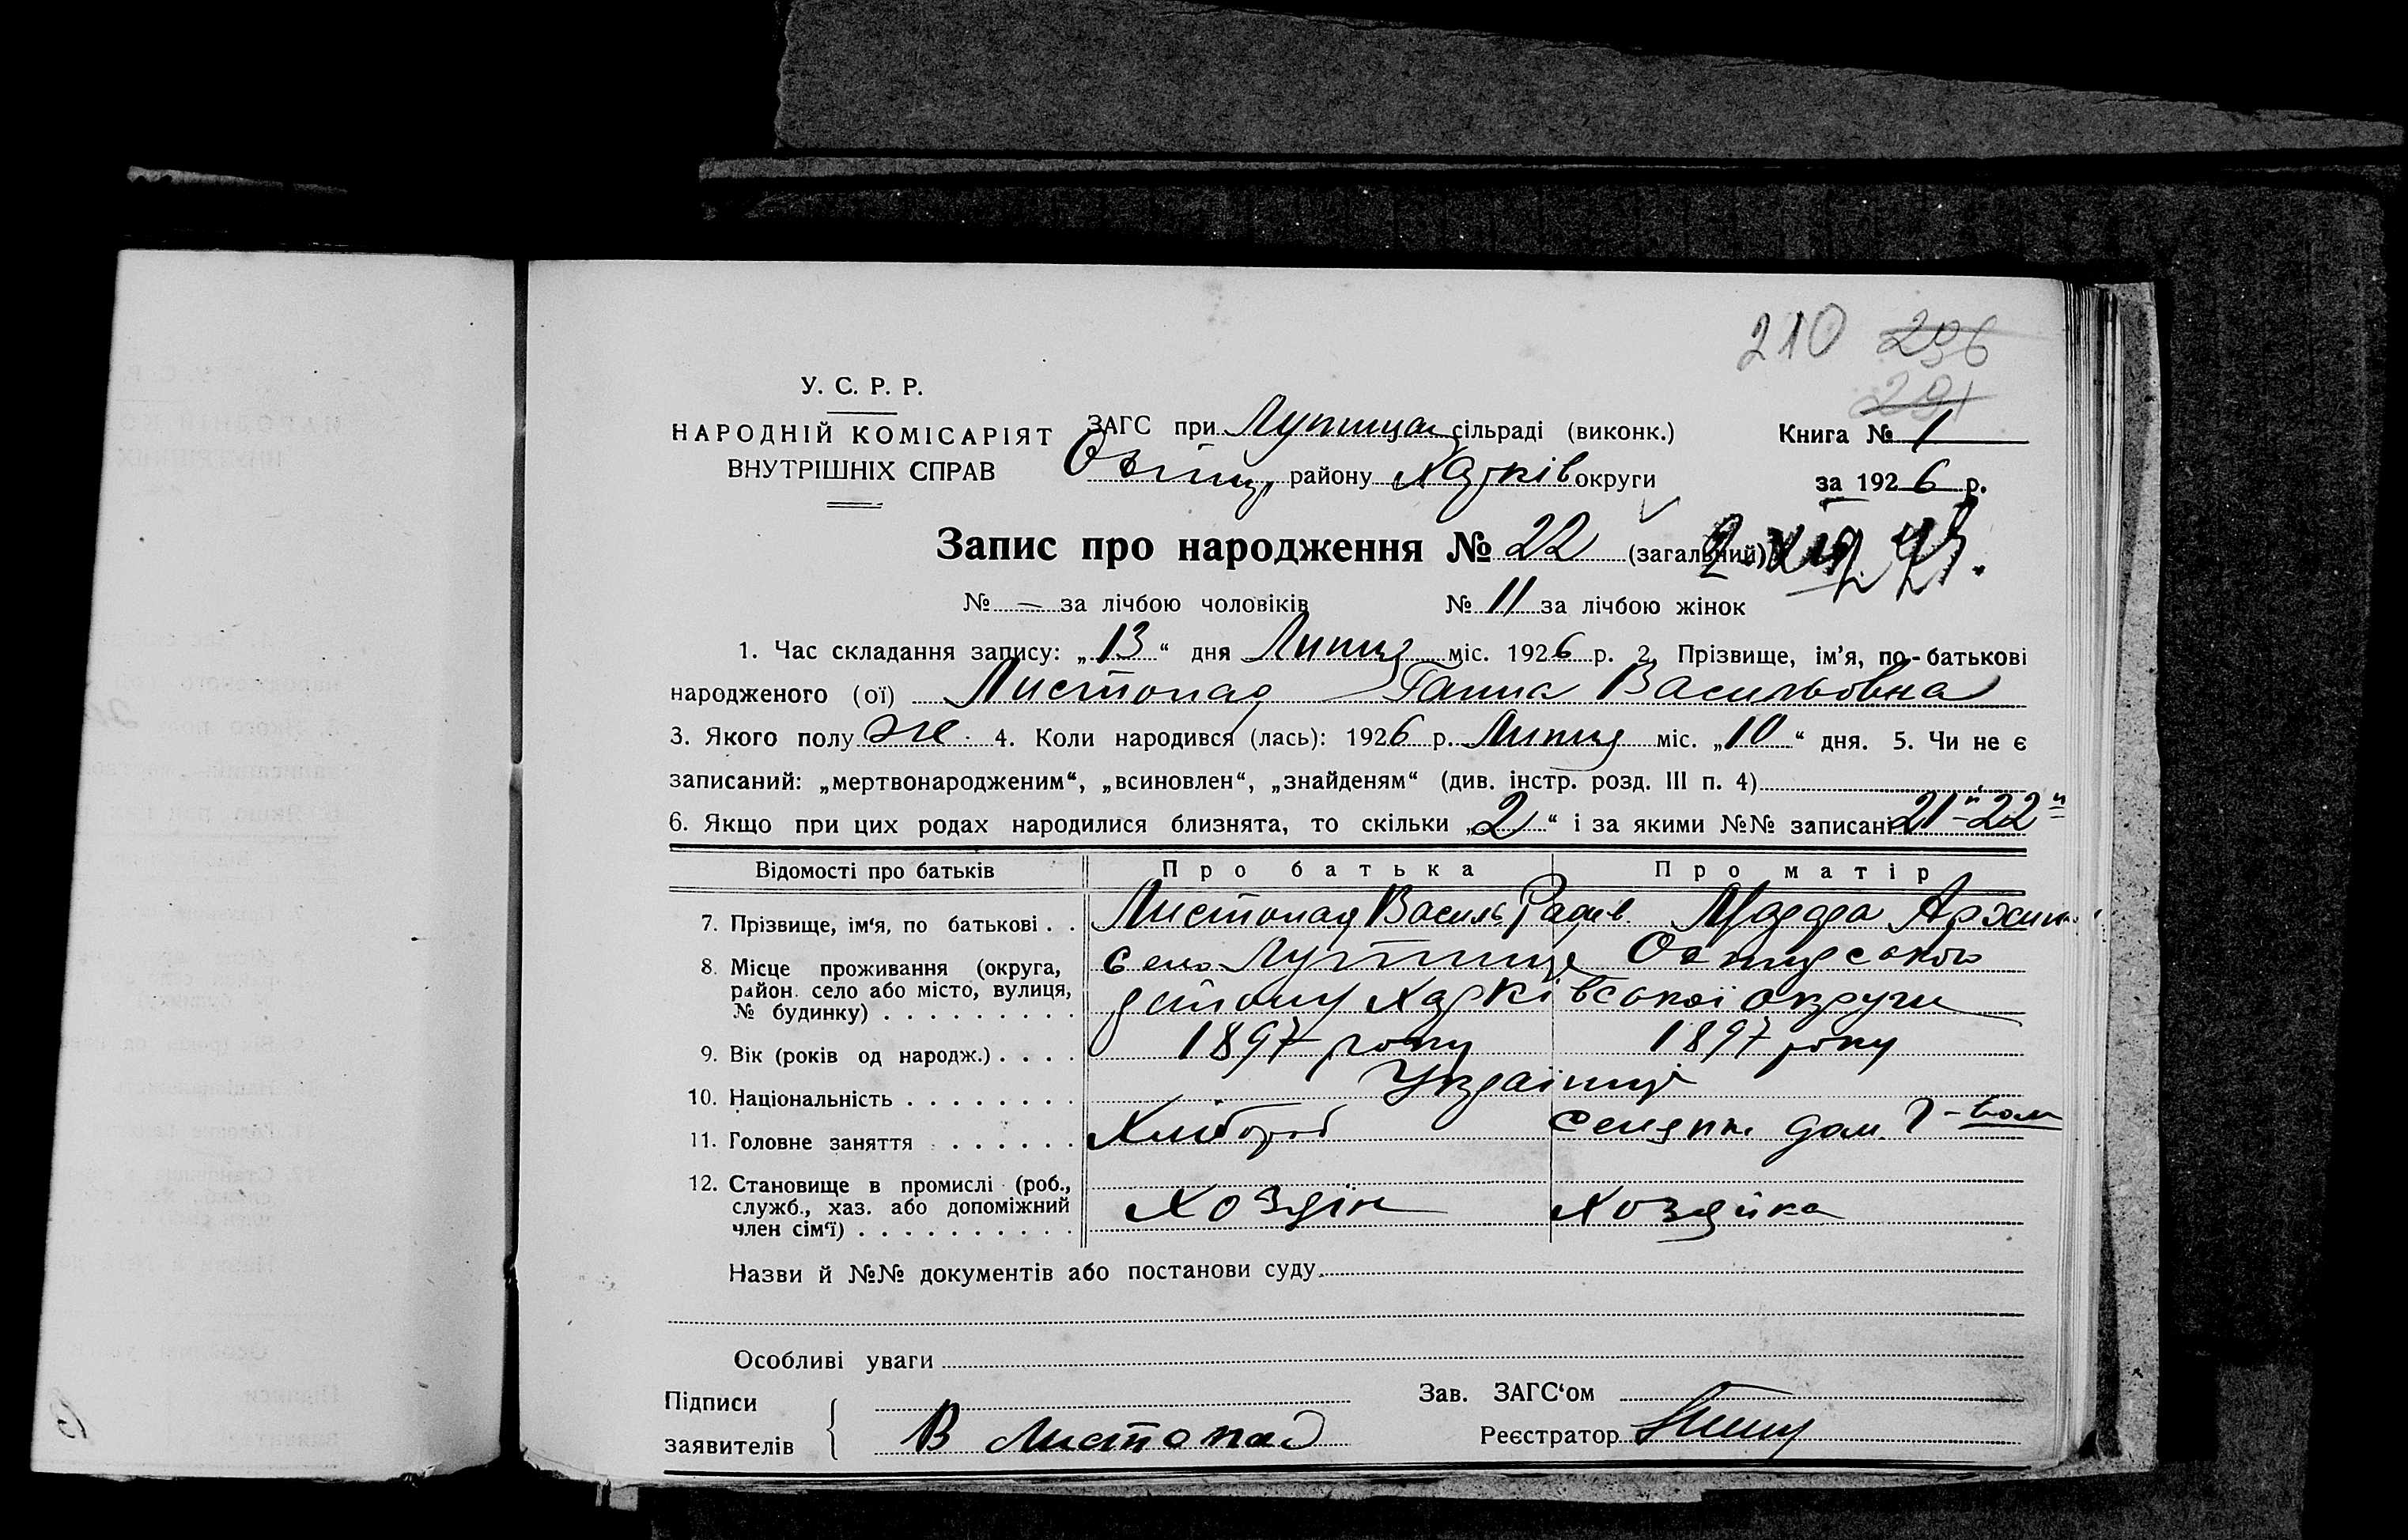 210 296
291
У. С. Р. Р.
НАРОДНІЙ КОМІСАРІЯТ
ВНУТРІШНІХ СПРАВ
ЗАГС при сільраді (виконк.)
району Харків округи
Книга № 1
за 1926 р.
Запис про народження № 22 (загальний)
№ — за лічбою чоловіків № 11 за лічбою жінок
1. Час складання запису: „13“ дня Липця міс. 1926 р. 2. Прізвище, ім’я, по-батькові
народженого (ої) Листопад Ганна Васильовна
3. Якого полу Же. 4. Коли народився (лась): 1926 р. Липця міс. „10“ дня. 5. Чи не є
записаний: „мертвонародженим“, „всиновлен“, „знайденям“ (див. інстр. розд. III п. 4)
6. Якщо при цих родах народилися близнята, то скільки „2“ і за якими №№ записані 21й-22й
Відомості про батьків Про батька Про матір
7. Прізвище, ім‘я, по батькові . . Листопад Василь Радив.
8. Місце проживання (округа,
район. село або місто, вулиця,
№ будинку) . . . . . . . . .
село
району Харківської округи
9. Вік (років од народж.) . . . . 1897 року 1897 року
10. Національність . . . . . . . . Українці
11. Головне заняття . . . . . . Хлібороб Селянк. дом.
12. Становище в промислі (роб.,
служб., хаз. або допоміжний
член сім‘ї) . . . . . . . . . .
Хозяін Хозяйка
Назви й №№ документів або постанови суду
Особливі уваги
Підписи
заявителів
В Листопад
Зав. ЗАГС‘ом
Реєстратор